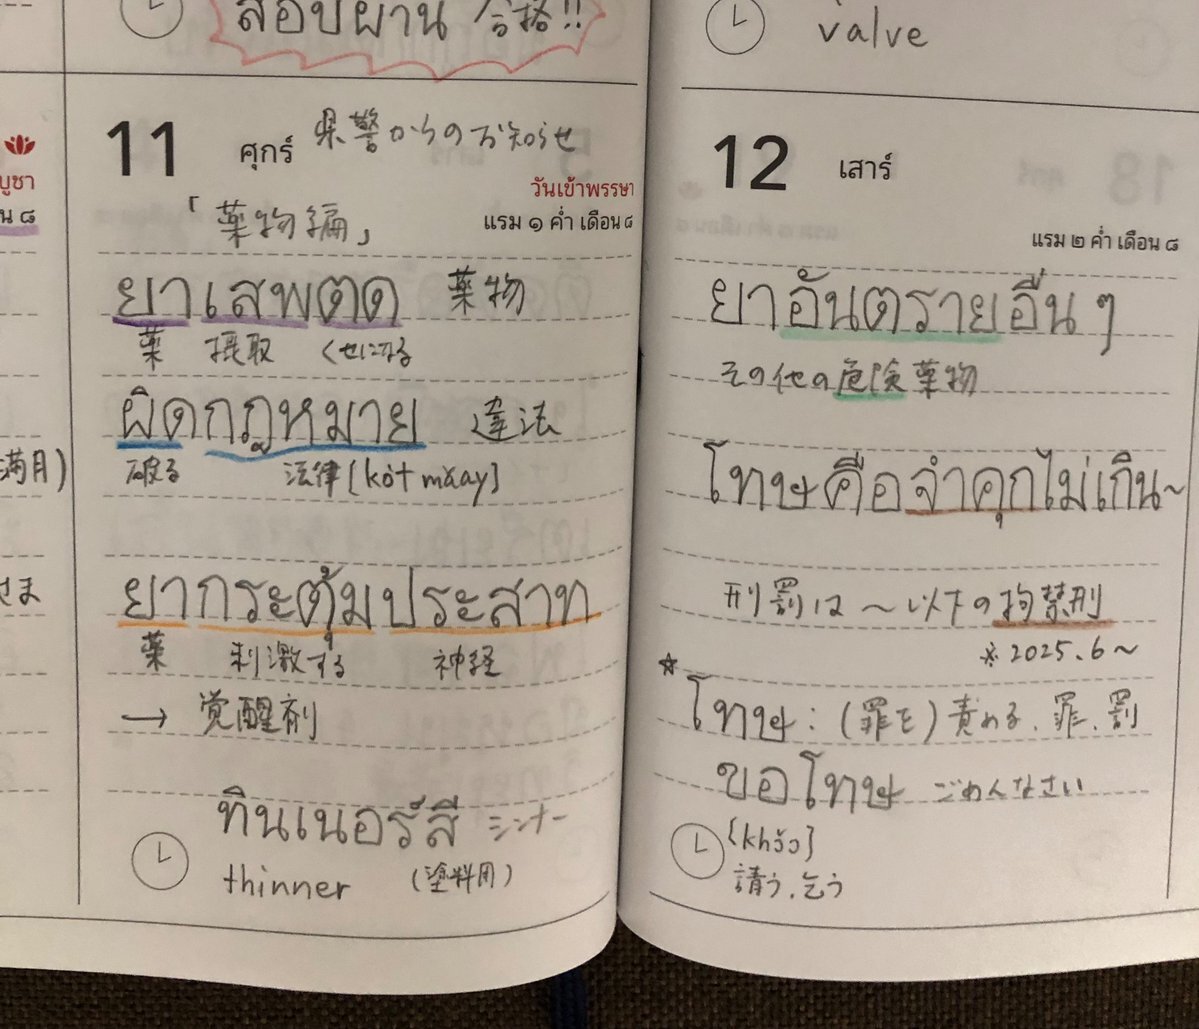 สอบผ่าน 合格!!
บูชา
น ๘
満月)
さま
11 ศุกร์ 県警からのお知らせ
วันเข้าพรรษา
「薬物編」
แรม ๑ ค่ำ เดือน ๘
ยาเสพตติด 薬物
薬 摂取 くせになる
ผิดกฎหมาย 違法
破る 法律[kòt mǎay]
ยากระตุ้มประสาท
薬 刺激する 神経
→ 覚醒剤
ทินเนอร์สี シンナー
thinner (塗料用)
valve
12 เสาร์
แรม ๒ ค่ำ เดือน ๘
ยาอันตรายอื่น ๆ
その他の危険薬物
โทษคือจำคุกไม่เกิน~
刑罰は~以下の拘禁刑
※2025.6~
☆
โทษ:(罪を)責める.罪.罰
ขอโทษ ごめんなさい
[khɔ̌ɔ]
請う.乞う